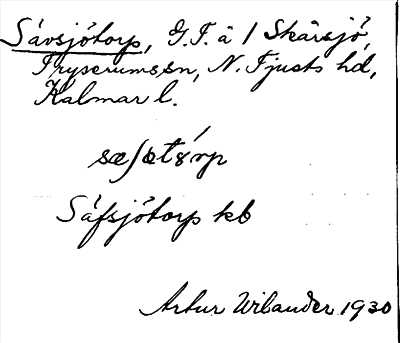 Sävsjötorp, G.T. å / Skärsjö,
Tryserums sn, N. Tjusts hd,
Kalmar l.
Säfsjötorp kb
Artur Wilander 1930